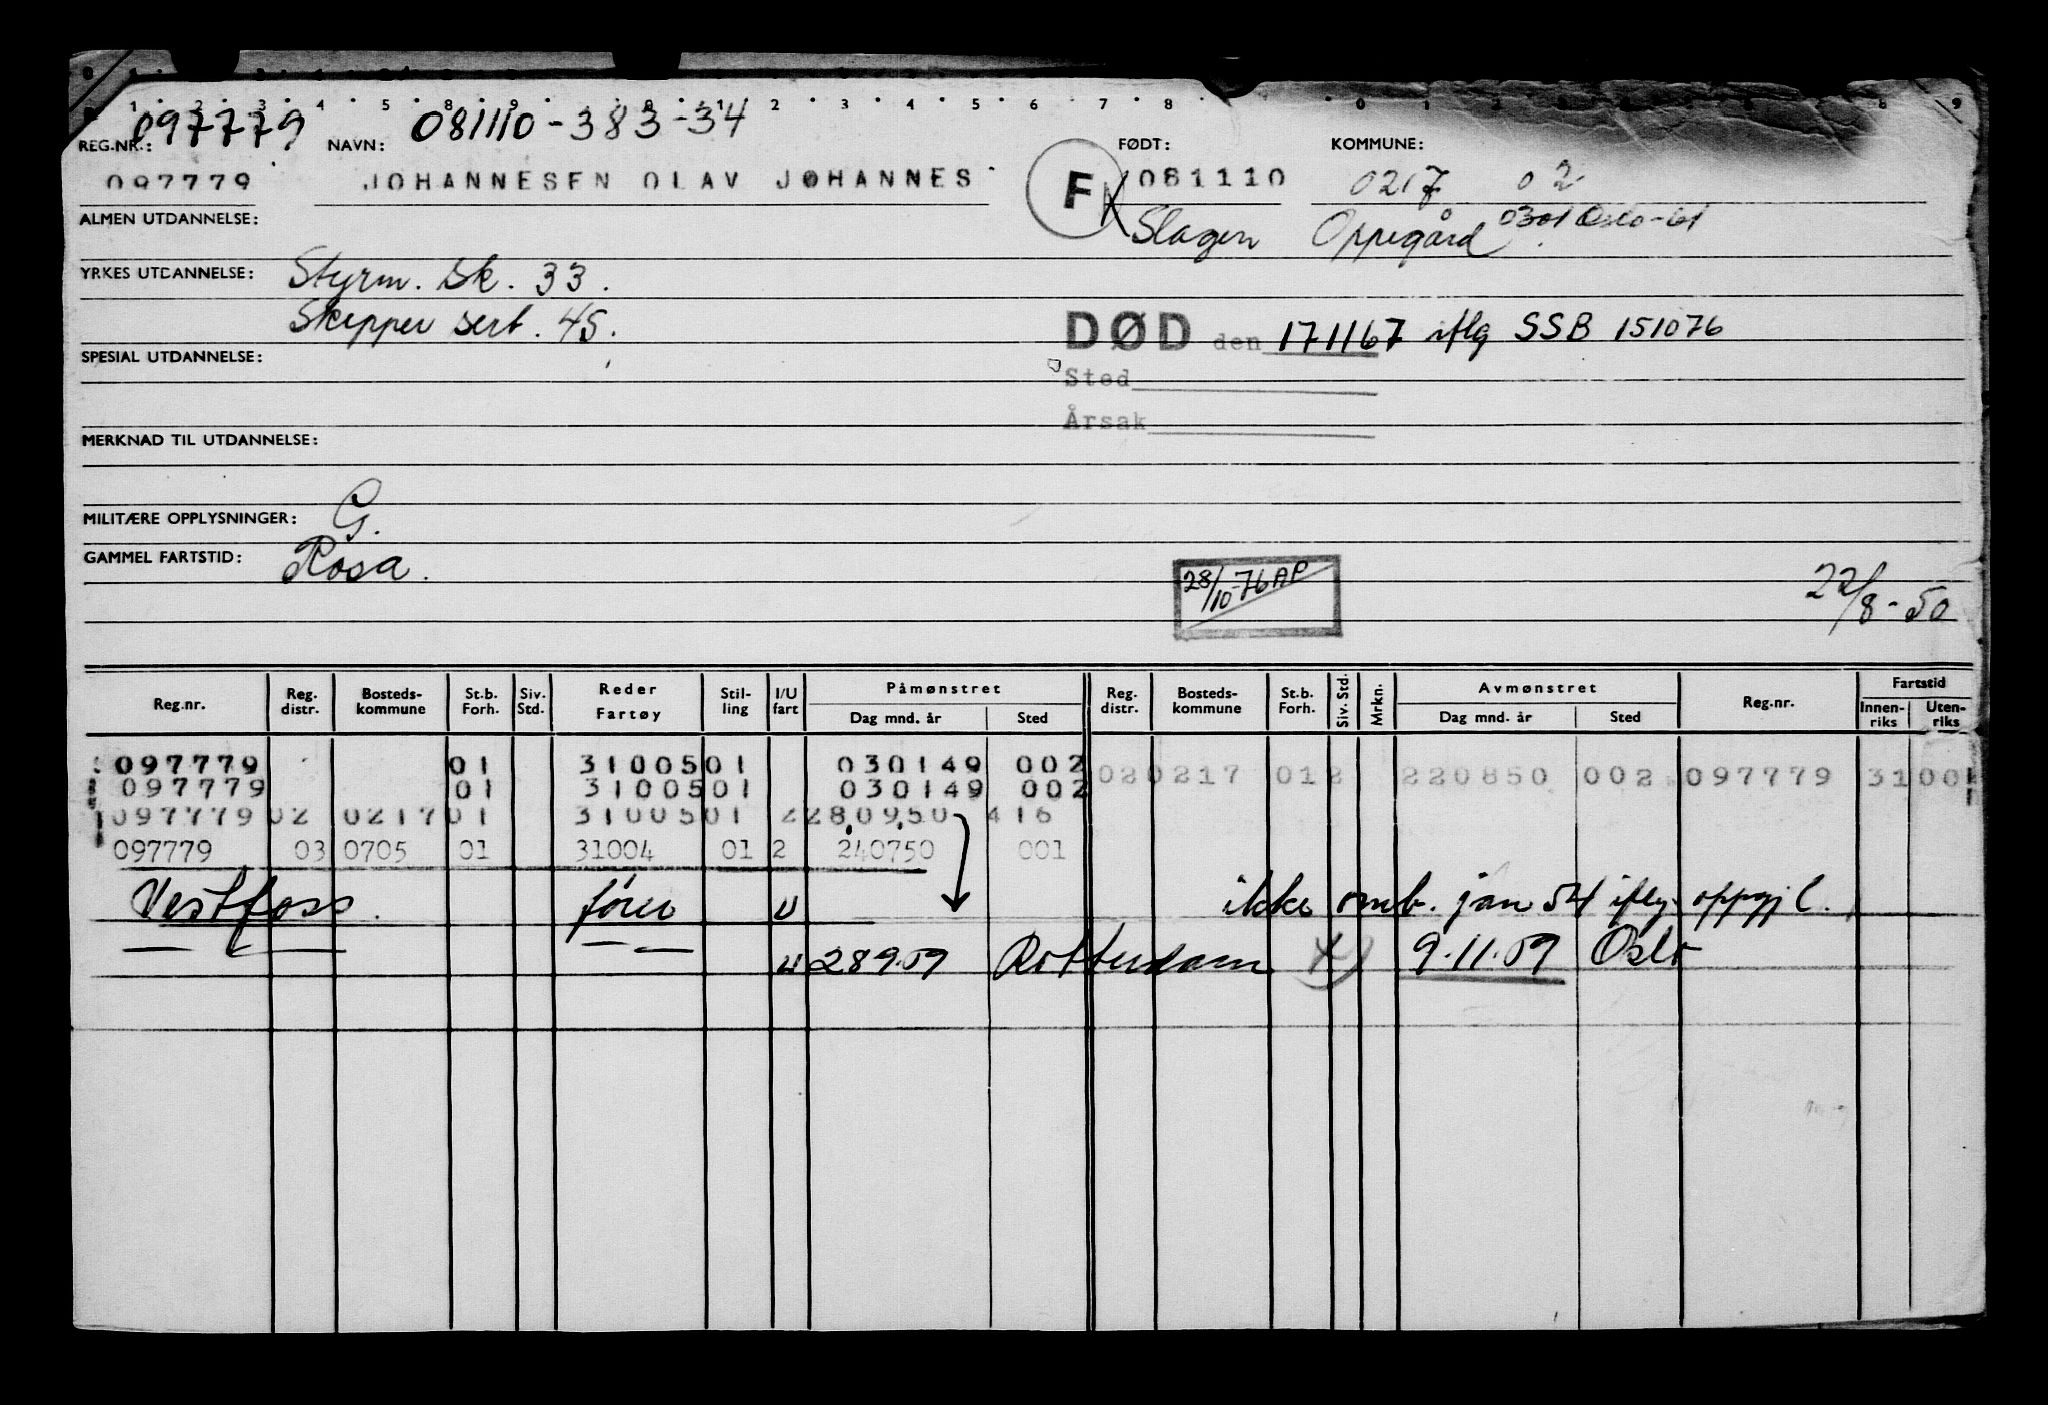 097779 081110-383-34
REG.NR.: NAVN: FØDT: KOMMUNE:
097779 JOHANNESEN OLAV JOHANNES F 081110 0217 02
ALMEN UTDANNELSE: Slagen Oppegård 0301 Oslo-61
YRKES UTDANNELSE: Styrm. sk. 33.
Skipper sert. 45. DØD den 171167 iflg SSB 151076
SPESIAL UTDANNELSE:
Sted
Årsak
MERKNAD TIL UTDANNELSE:
MILITÆRE OPPLYSNINGER: G.
GAMMEL FARTSTID: Rosa.
28/10-76 AP 22/8-50
Reg.nr. Reg. distr. Bosteds-kommune St.b. Forh. Siv. Std. Reder Fartøy Stil-ling I/U fart Påmønstret Dag mnd. år Sted Reg. distr. Bosteds-kommune St.b. Forh. Siv. Std. Mrkn. Avmønstret Dag mnd. år Sted Reg.nr. Fartstid Innen-riks Uten-riks
097779 01 31005 01 030149 002
020217 012 220850 002 097779 3100
097779 01 31005 01 030149 002
097779 02 0217 01 31005 01 2 280950 416
097779 03 0705 01 31004 01 2 240750 001
Vestfoss. fører U ikke omb. jan 54 iflg oppgj l.
U 28 9.59 Rotterdam 9.11.59 Oslo